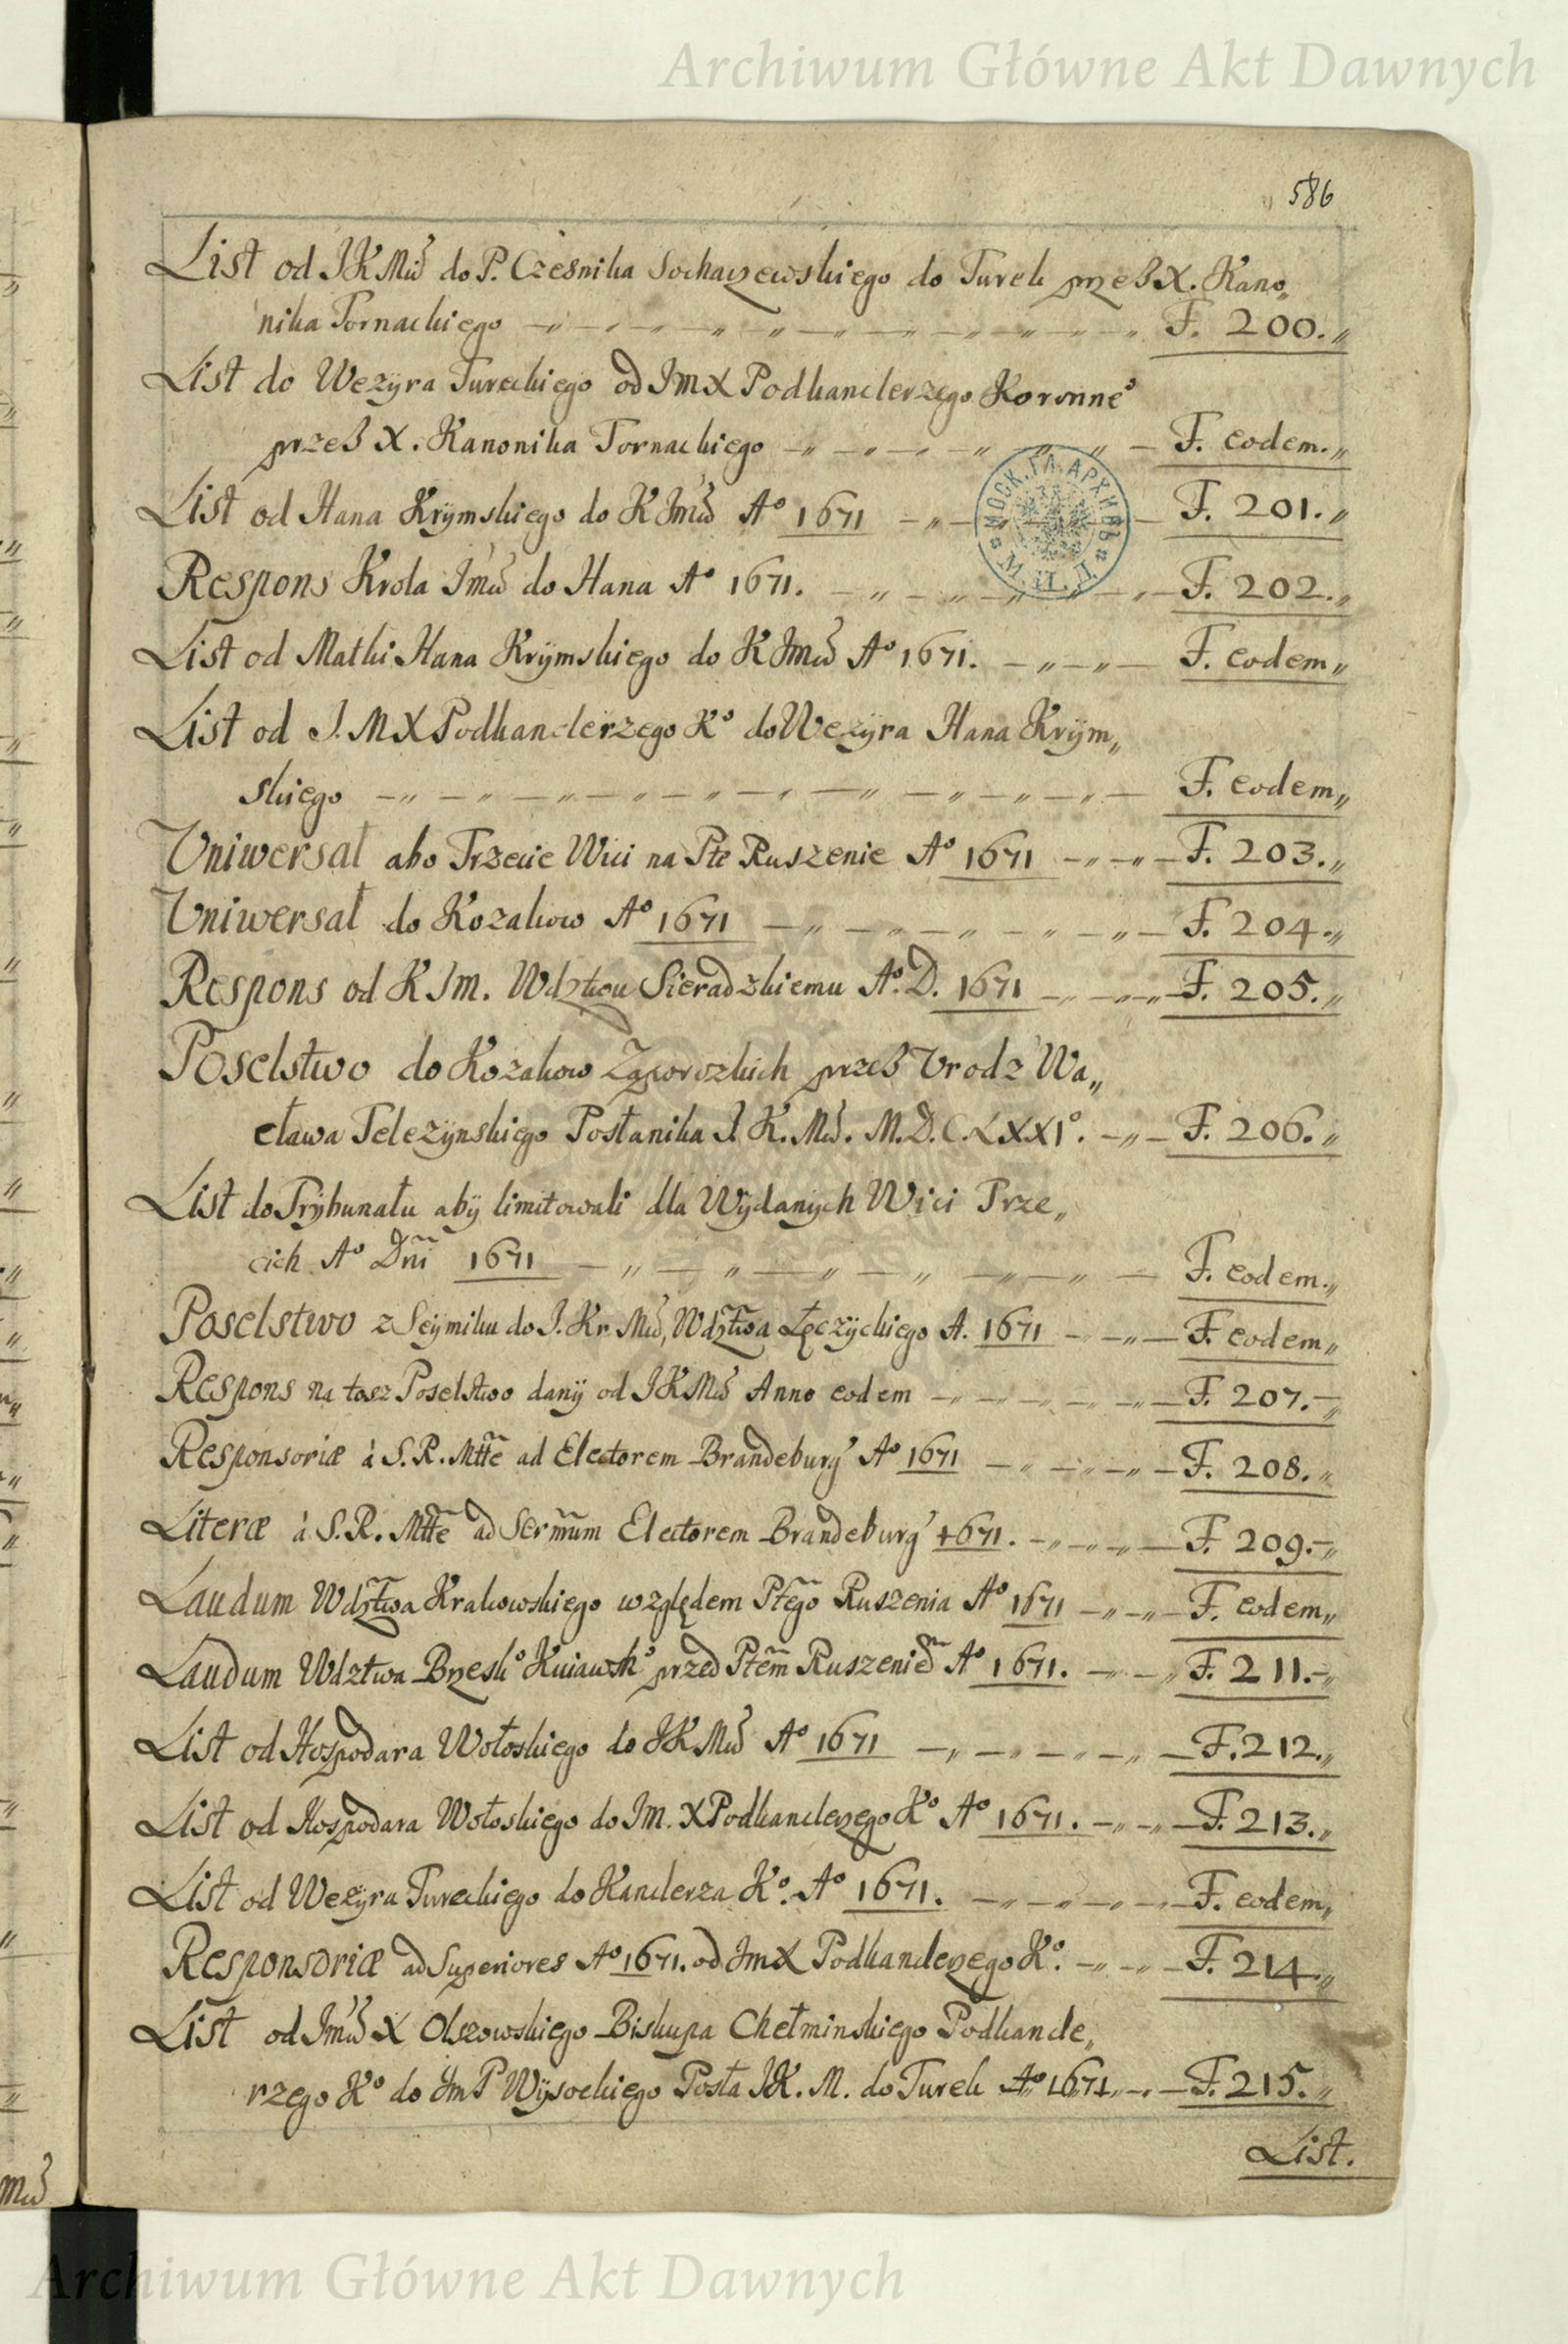 Archiwum Główne Akt Dawnych
586
List od JKMći do P. Cześnika Sochaczewskiego do Turek przeß X. Kano„
nika Tornackiego F. 200.„
List do Wezyra Tureckiego od JmX Podkanclerzego Koronneº
przeß X. Kanonika Tornackiego F. eodem.„
List od Hana Krÿmskiego do KJmći Aº 1671 F. 201.„
Respons Krola Jmći do Hana Aº 1671. F. 202.„
List od Matki Hana Krÿmskiego do KJmći Aº 1671. F. eodem„
List od J. M X Podkanclerzego Kº do Wezÿra Hana Krÿm„
skiego F. eodem„
Vniwersał abo Trzecie Wici na Płe Ruszenie Aº 1671 F. 203.„
Vniwersał do Kozakow Aº 1671 F. 204.„
Respons od K Jm. Wdztwu Sieradzkiemu Aº. D. 1671 F. 205.„
Poselstwo do Kozakow Zaporozkich przeß Vrodz Wa„
cława Telezÿnskiego Posłanika J. K. Mći. M.D.C.LXXIº. F. 206.„
List do Trÿbunału abÿ limitowali dla Wÿdanÿch Wici Trze„
cich Aº Dñi 1671 F. eodem.„
Poselstwo z Seÿmiku do J. Kr. Mći, Wdztwa Łęczÿckiego A. 1671 F. eodem„
Respons na tosz Poselstwo danÿ od JKMći Anno eodem F. 207.
Responsoriæ à S. R. Mtte ad Electorem Brandeburg’ Aº 1671 F. 208.„
Literæ à S. R. Mtte ad Sermum Electorem Brandeburg’ 1671. F. 209.
Laudum Wdztwa Krakowskiego względem Płego Ruszenia Aº 1671 F. eodem„
Laudum Wdztwa Brzeskº Kuiawskº przed Płem Ruszenied Aº 1671. F. 211.
List od Hospodara Wołoskiego do JKMći Aº 1671 F. 212.„
List od Hospodara Wołoskiego do Jm. X Podkanclerzego Kº Aº 1671. F. 213.„
List od Wezÿra Tureckiego do Kanclerza Kº. Aº 1671. F. eodem„
Responsoriæ ad Superiores Aº 1671. od JmX Podkanclerzego Kº. F. 214„
List od Jmći X Olszowskiego Biskupa Chełminskiego Podkancle„
rzego Kº do JmP Wÿsockiego Posła JK. M. do Turek Aº 1671 F. 215.„
List.
Archiwum Główne Akt Dawnych